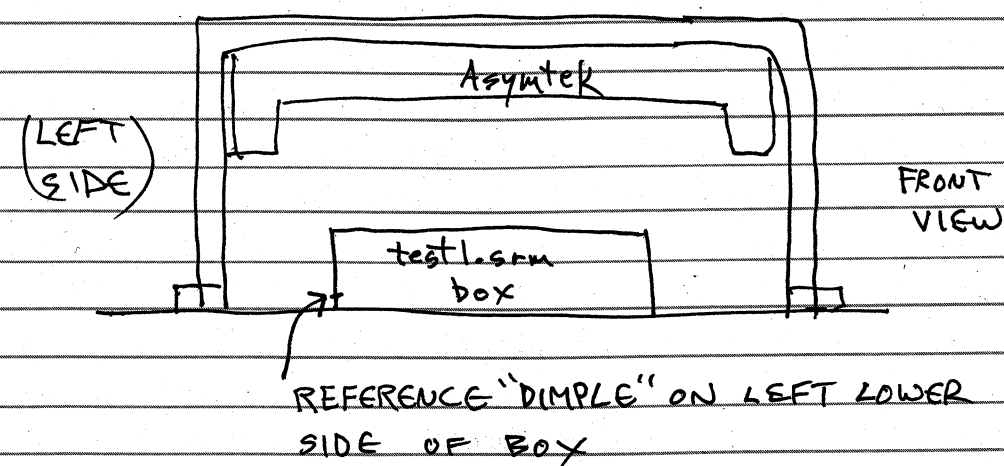 Asymtek
(LEFT
SIDE)
FRONT
VIEW
test1.srm
box
REFERENCE "DIMPLE" ON LEFT LOWER
SIDE OF BOX